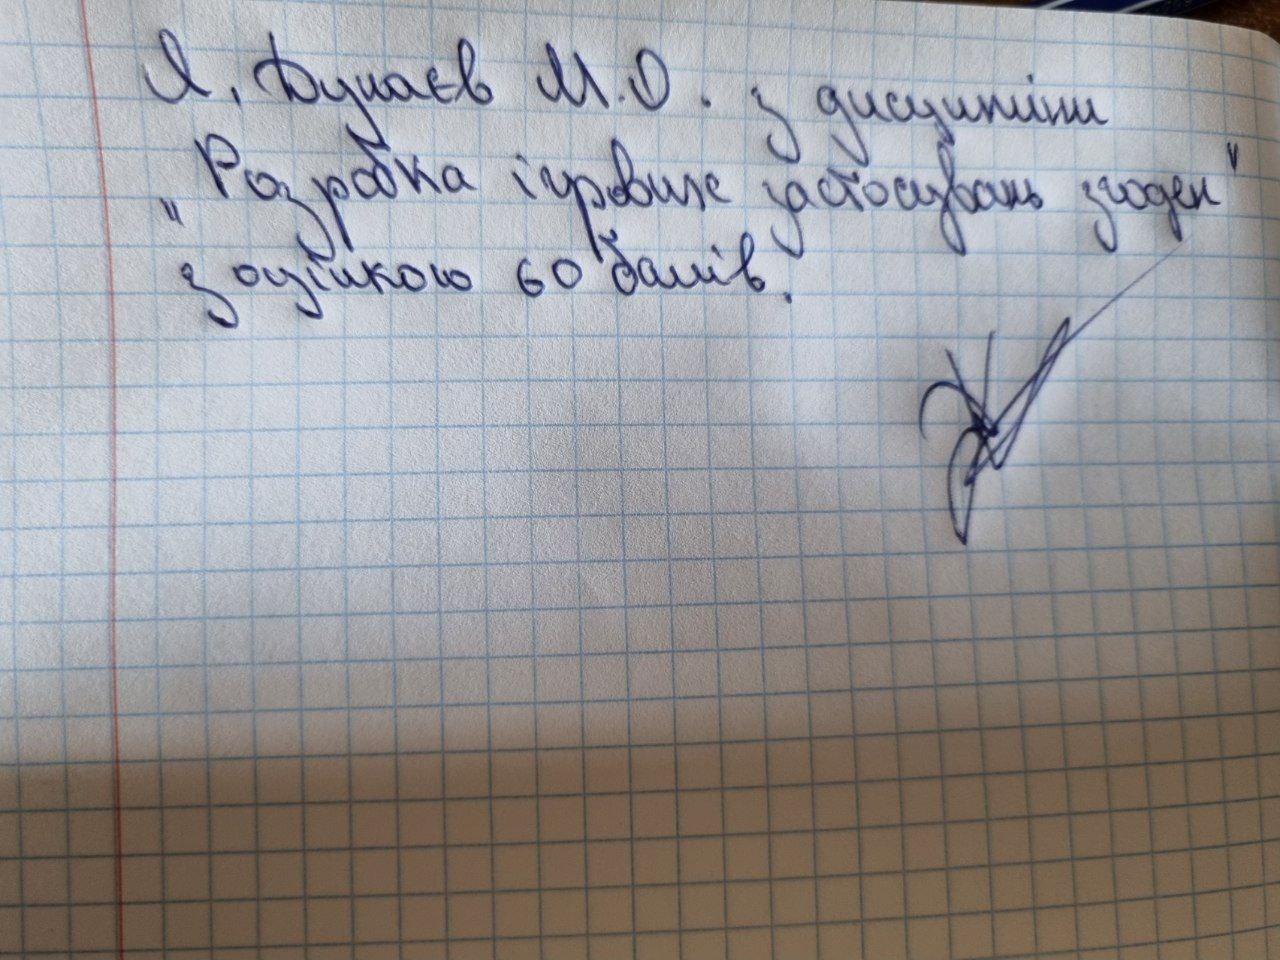 Я, Дунаєв М.О. з дисципліни
"Розробка ігрових застосувань згоден"
з оцінкою 60 балів.